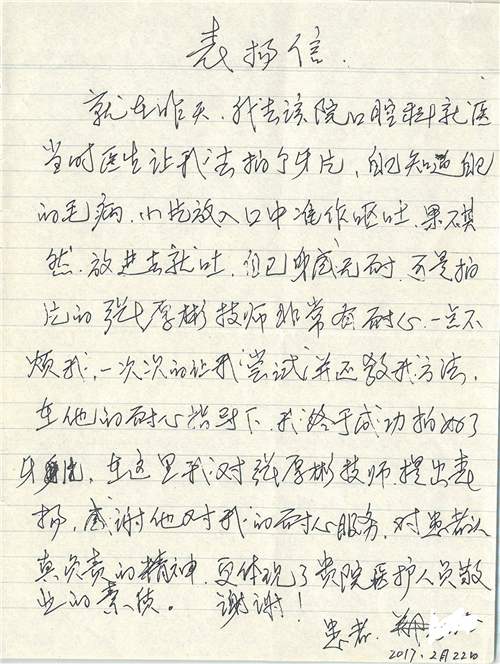 表扬信.
就在昨天.我去该院口腔科就医
当时医生让我去拍个牙片,自己知道自己
的毛病,小片放入口中准作呕吐.果不其
然.放进去就吐.自己身感无耐.可是拍
片的张厚彬技师非常有耐心.一点不
烦我,一次次的让我尝试并还教我方法,
在他的耐心指导下.我终于成功拍好了
牙片,在这里我对张厚彬技师提出表
扬,感谢他对我的耐心服务,对患者认
真负责的精神.更体现了贵院医护人员敬
业的素质。 谢谢!
患者.
2017.2月22日